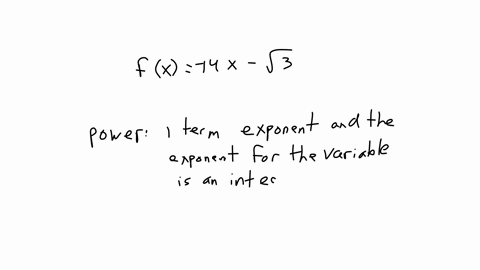 f(x) = -14x - √3
power: 1 term exponent and the
exponent for the variable
is an intec